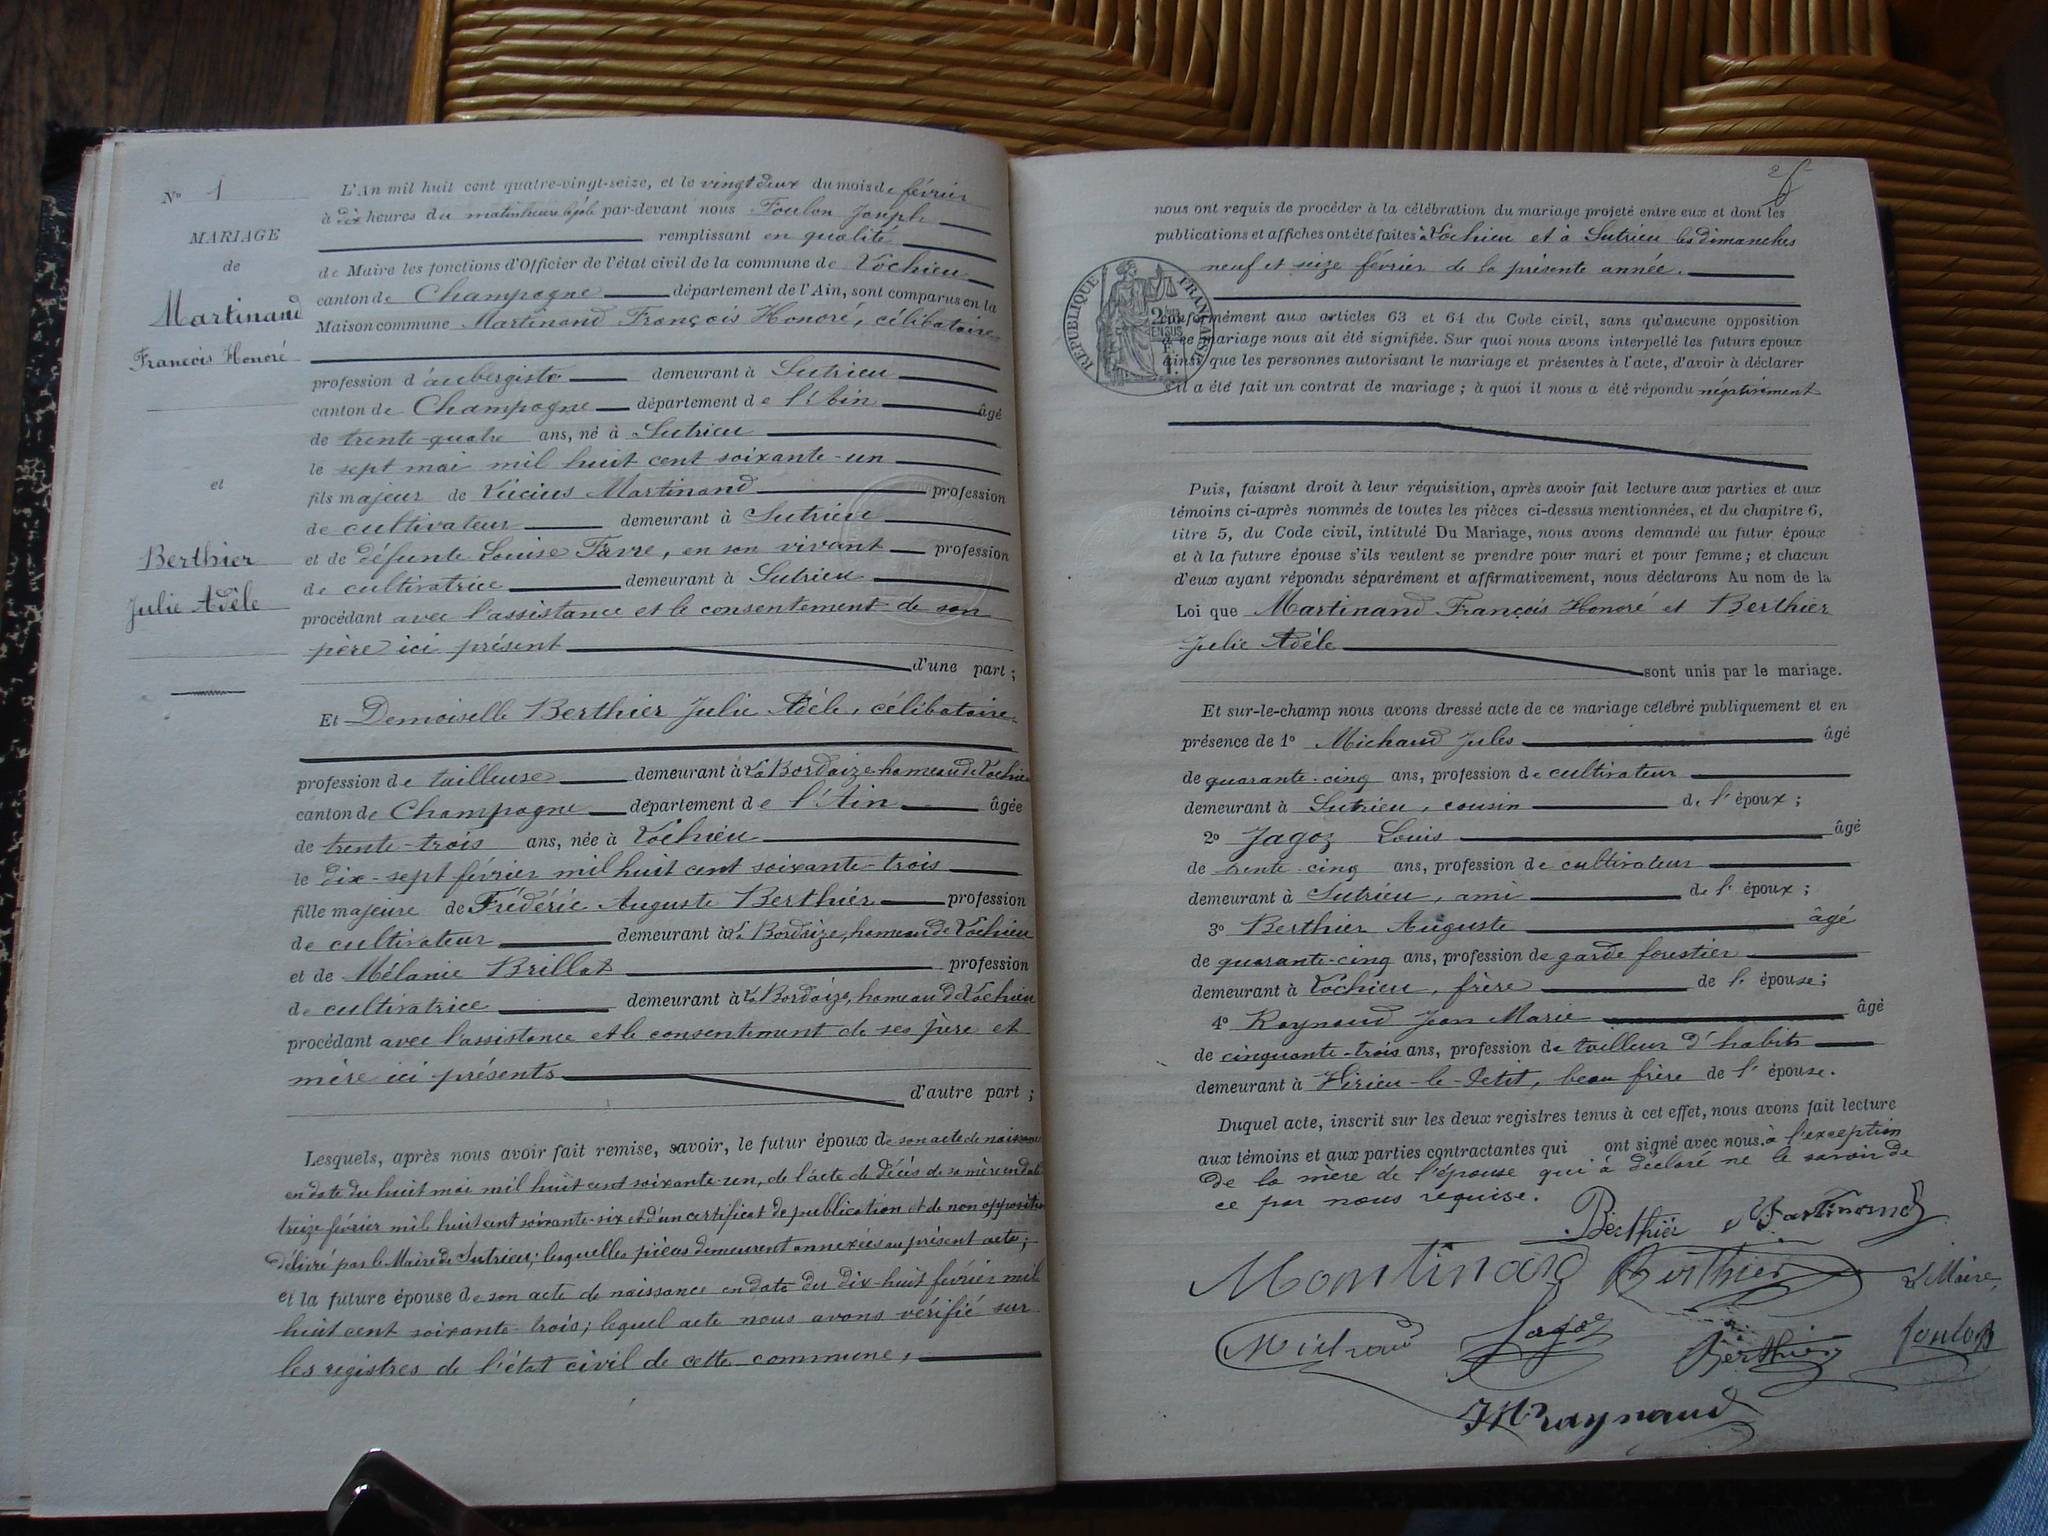 N° 1
MARIAGE
de
Martinand
François Honoré
et
Berthier
Julie Adèle
L'An mil huit cent quatre-vingt-seize, et le vingt deux du mois de février
à dix heures du matin heure légale par-devant nous Foulon Joseph
remplissant en qualité
de Maire les fonctions d'Officier de l'état civil de la commune de Lochieu
canton de Champagne département de l'Ain, sont comparus en la
Maison commune Martinand François Honoré, célibataire
profession d'aubergiste demeurant à Sutrieu
canton de Champagne département de l'Ain âgé
de trente-quatre ans, né à Sutrieu
le sept mai mil huit cent soixante-un
fils majeur de Lucius Martinand profession
de cultivateur demeurant à Sutrieu
et de défunte Louise Favre, en son vivant profession
de cultivatrice demeurant à Sutrieu
procédant avec l'assistance et le consentement de son
père ici présent d'une part ;
Et Demoiselle Berthier Julie Adèle, célibataire
profession de tailleuse demeurant à La Bordaize hameau de Lochieu
canton de Champagne département de l'Ain âgée
de trente-trois ans, née à Lochieu
le dix-sept février mil huit cent soixante-trois
fille majeure de Frédéric Auguste Berthier profession
de cultivateur demeurant à La Bordaize, hameau de Lochieu
et de Mélanie Brillat profession
de cultivatrice demeurant à La Bordaize, hameau de Lochieu
procédant avec l'assistance et le consentement de ses père et
mère ici présents d'autre part ;
Lesquels, après nous avoir fait remise, savoir, le futur époux de son acte de naissance
en date du huit mai mil huit cent soixante-un, de l'acte de décès de sa mère en date
treize février mil huit cent soixante-six et d'un certificat de publication et de non opposition
délivré par le Maire de Sutrieu; lesquelles pièces demeurent annexées au présent acte;
et la future épouse de son acte de naissance en date du dix-huit février mil
huit cent soixante-trois; lequel acte nous avons vérifié sur
les registres de l'état civil de cette commune,
2
nous ont requis de procéder à la célébration du mariage projeté entre eux et dont les
publications et affiches ont été faites à Lochieu et à Sutrieu les dimanches
neuf et seize février de la présente année.
RÉPUBLIQUE FRANÇAISE
conformément aux articles 63 et 64 du Code civil, sans qu'aucune opposition
à ce mariage nous ait été signifiée. Sur quoi nous avons interpellé les futurs époux
ainsi que les personnes autorisant le mariage et présentes à l'acte, d'avoir à déclarer
s'il a été fait un contrat de mariage ; à quoi il nous a été répondu négativement
Puis, faisant droit à leur réquisition, après avoir fait lecture aux parties et aux
témoins ci-après nommés de toutes les pièces ci-dessus mentionnées, et du chapitre 6,
titre 5, du Code civil, intitulé Du Mariage, nous avons demandé au futur époux
et à la future épouse s'ils veulent se prendre pour mari et pour femme ; et chacun
d'eux ayant répondu séparément et affirmativement, nous déclarons Au nom de la
Loi que Martinand François Honoré et Berthier
Julie Adèle
sont unis par le mariage.
Et sur-le-champ nous avons dressé acte de ce mariage célébré publiquement et en
présence de 1° Michaud Jules âgé
de quarante-cinq ans, profession de cultivateur
demeurant à Sutrieu, cousin de l'époux ;
2° Jagoz Louis âgé
de trente-cinq ans, profession de cultivateur
demeurant à Sutrieu, ami de l'époux ;
3° Berthier Auguste âgé
de quarante-cinq ans, profession de garde forestier
demeurant à Lochieu, frère de l'épouse ;
4° Raynaud Jean Marie âgé
de cinquante-trois ans, profession de tailleur d'habits
demeurant à Virieu-le-Petit, beau frère de l'épouse.
Duquel acte, inscrit sur les deux registres tenus à cet effet, nous avons fait lecture
aux témoins et aux parties contractantes qui ont signé avec nous à l'exception
de la mère de l'épouse qui a déclaré ne le savoir de
ce par nous requise.
Berthier Martinand
Martinand Berthier Le Maire,
Michaud Jagoz Berthier Foulon
JM Raynaud